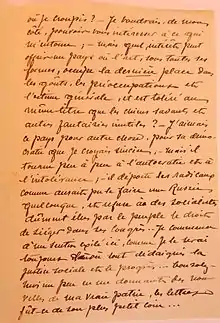 où je croupis ? — Je voudrais, de mon
côté, pouvoir vous intéresser à ce qui
m'entoure ; — mais quel intérêt peut
offrir un pays où l'art, sous toutes ses
formes, occupe la dernière place dans
les goûts, les préoccupations et
l'estime générale, et est toléré au
même titre que les chiens savants et
autres fantaisies inutiles. — J'aimais
ce pays pour autre chose, pour sa démo-
cratie que je croyais sincère, — mais il
tourne peu à peu à l'autocratie et à
l'intolérance ; il déporte des radicaux
comme aurait pu le faire une Russie
quelconque, et refuse à des socialistes
dûment élus par le peuple le droit
de siéger dans ses congrès. — Je commence
à me sentir exilé ici, comme je le serai
toujours là où l'on dédaigne la
justice sociale et le progrès...
moi un peu en me donnant des nou-
velles de ma vraie patrie, les lettres
fût-ce de son plus petit coin...